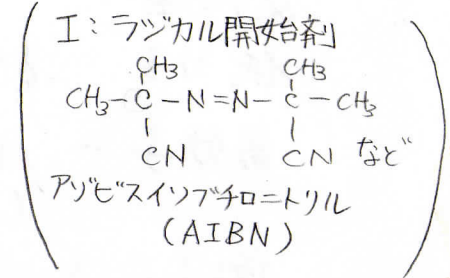 I：ラジカル開始剤
CH3 CH3
CH3-C-N=N-C-CH3
CN CN など
アゾビスイソブチロニトリル
(AIBN)